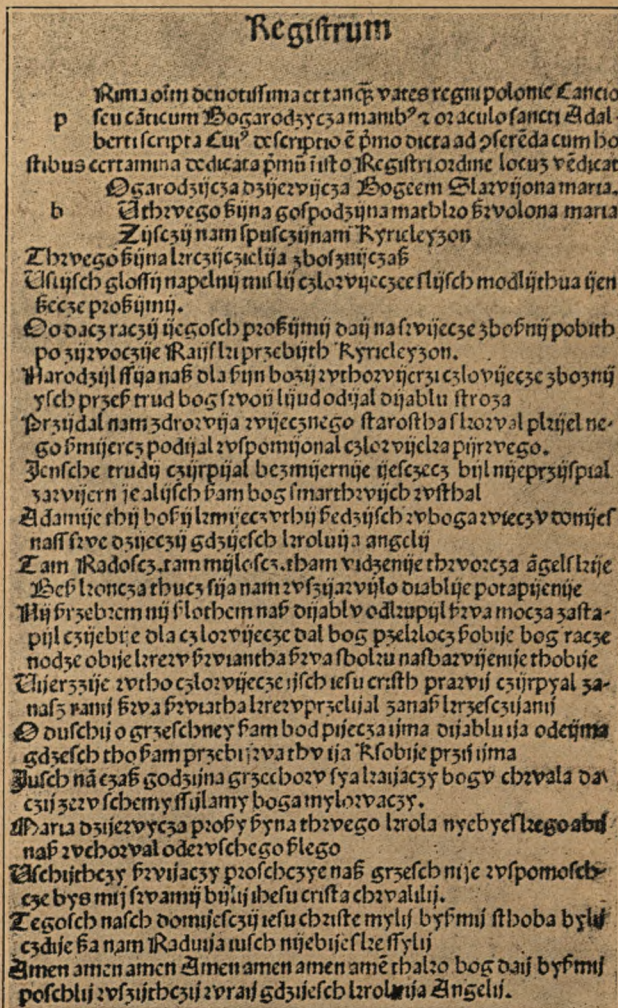 Registrum
Rima oīm devotissima et tanq̄ȝ vates regni polonie Cancio
p seu cāticum Bogarodzycza manib⁹ ⁊ oraculo sancti Adal
berti scripta Cui⁹ descriptio ē p̄mo dicta ad ɔserēda cum ho
stibus certamina dedicata p̄mū ī isto Registri ordine locuȝ vēdicat
Ogarodzijcza dzijerwijcza Bogeem Slarvijona maria.
b Uthrvego ßijna gospodzijna mathkro ßrvolona maria
Zijsczij nam spusczijnam Kyrieleyzon
Thrvego ßijna krrczijczicllija zbosznijczaß
Uslijsch glossij napelnij mislij czlorvijeczee slijsch modlijthua ijen
ßecze proßijmij.
Oo dacz raczij ijegosch proßijmij daij na srvijecze zboßnij pobith
po zijrvoczije Raijski przebijth Kyrieleyzon.
Narodzijl ssija naß dla ßijn bozij rvthorvijerzi czlovijecze zboznij
ysch przeß trud bog srvoij lijud odijal dijablu stroza
Przijdal nam zdrorvija rvijecznego starostha skorval pkrijel ne-
go ßmijercz podijal rvspomijonal czlorvijekra pijrrvego.
Jensche trudij czijrpijal bezmijernije ijesczecz bijl nijeprzijspial
zarvijern je alijsch ßam bog smarthrvijch rvsthal
Adamije thij boßij krmijeczv thij ßedzijsch rv boga rvieczv domijes
nass srve dzijeczij gdzijesch krrolvija angelij
Tam Radoscz. tam mijloscz. tham vidzenije thrvorcza āgelskije
Beß kroncza thucz sija nam rvszijarvijlo diablije potapijenije
Nij ßrzebrem nij slothem naß dijablv odkrupijl ßrva mocza zasta-
pijl czijebije dla czlorvijecze dal bog przekrlocz ßobije bog racze
nodze obije krrerv ßrviantha ßrva sbokru nasbarvijenije thobije
Uijerzzije rvtho czlorvijecze ijsch iesu cristh prarvij czijrpyal za-
nasz ranij ßrva ßrviatha krrerv przelijal zanaß krrzesczijanij
O duschij o grzeschney ßam bod pijecza ijma dijablu ija odeijma
gdzesch tho ßam przebijrva thv ija Ksobije przij ijma
Jusch nā czaß godzijna grzechorv sya kraijaczy bogv chrvala da
czij zerv schemy ssijlamy boga mylorvaczy.
Maria dzijervycza proßy ßyna thrvego krrola nyebyeskrego abij
naß rvchorval odervschego ßlego
Uschijthczy ßrvijaczy proschczye naß grzesch nije rvspomosch-
cze bys mij srvamij bijlij ihesu crista chrvalilij.
Tegosch nasch domijesczij iesu christe mylij byßmij sthoba bylij
czdije ßa nam Raduija iusch nijebijeskre ssylij
Amen amen amen Amen amen amen amē thakro bog daij byßmij
poschlij rvszijthczij rvraij gdzijesch krrolvija Angelij.